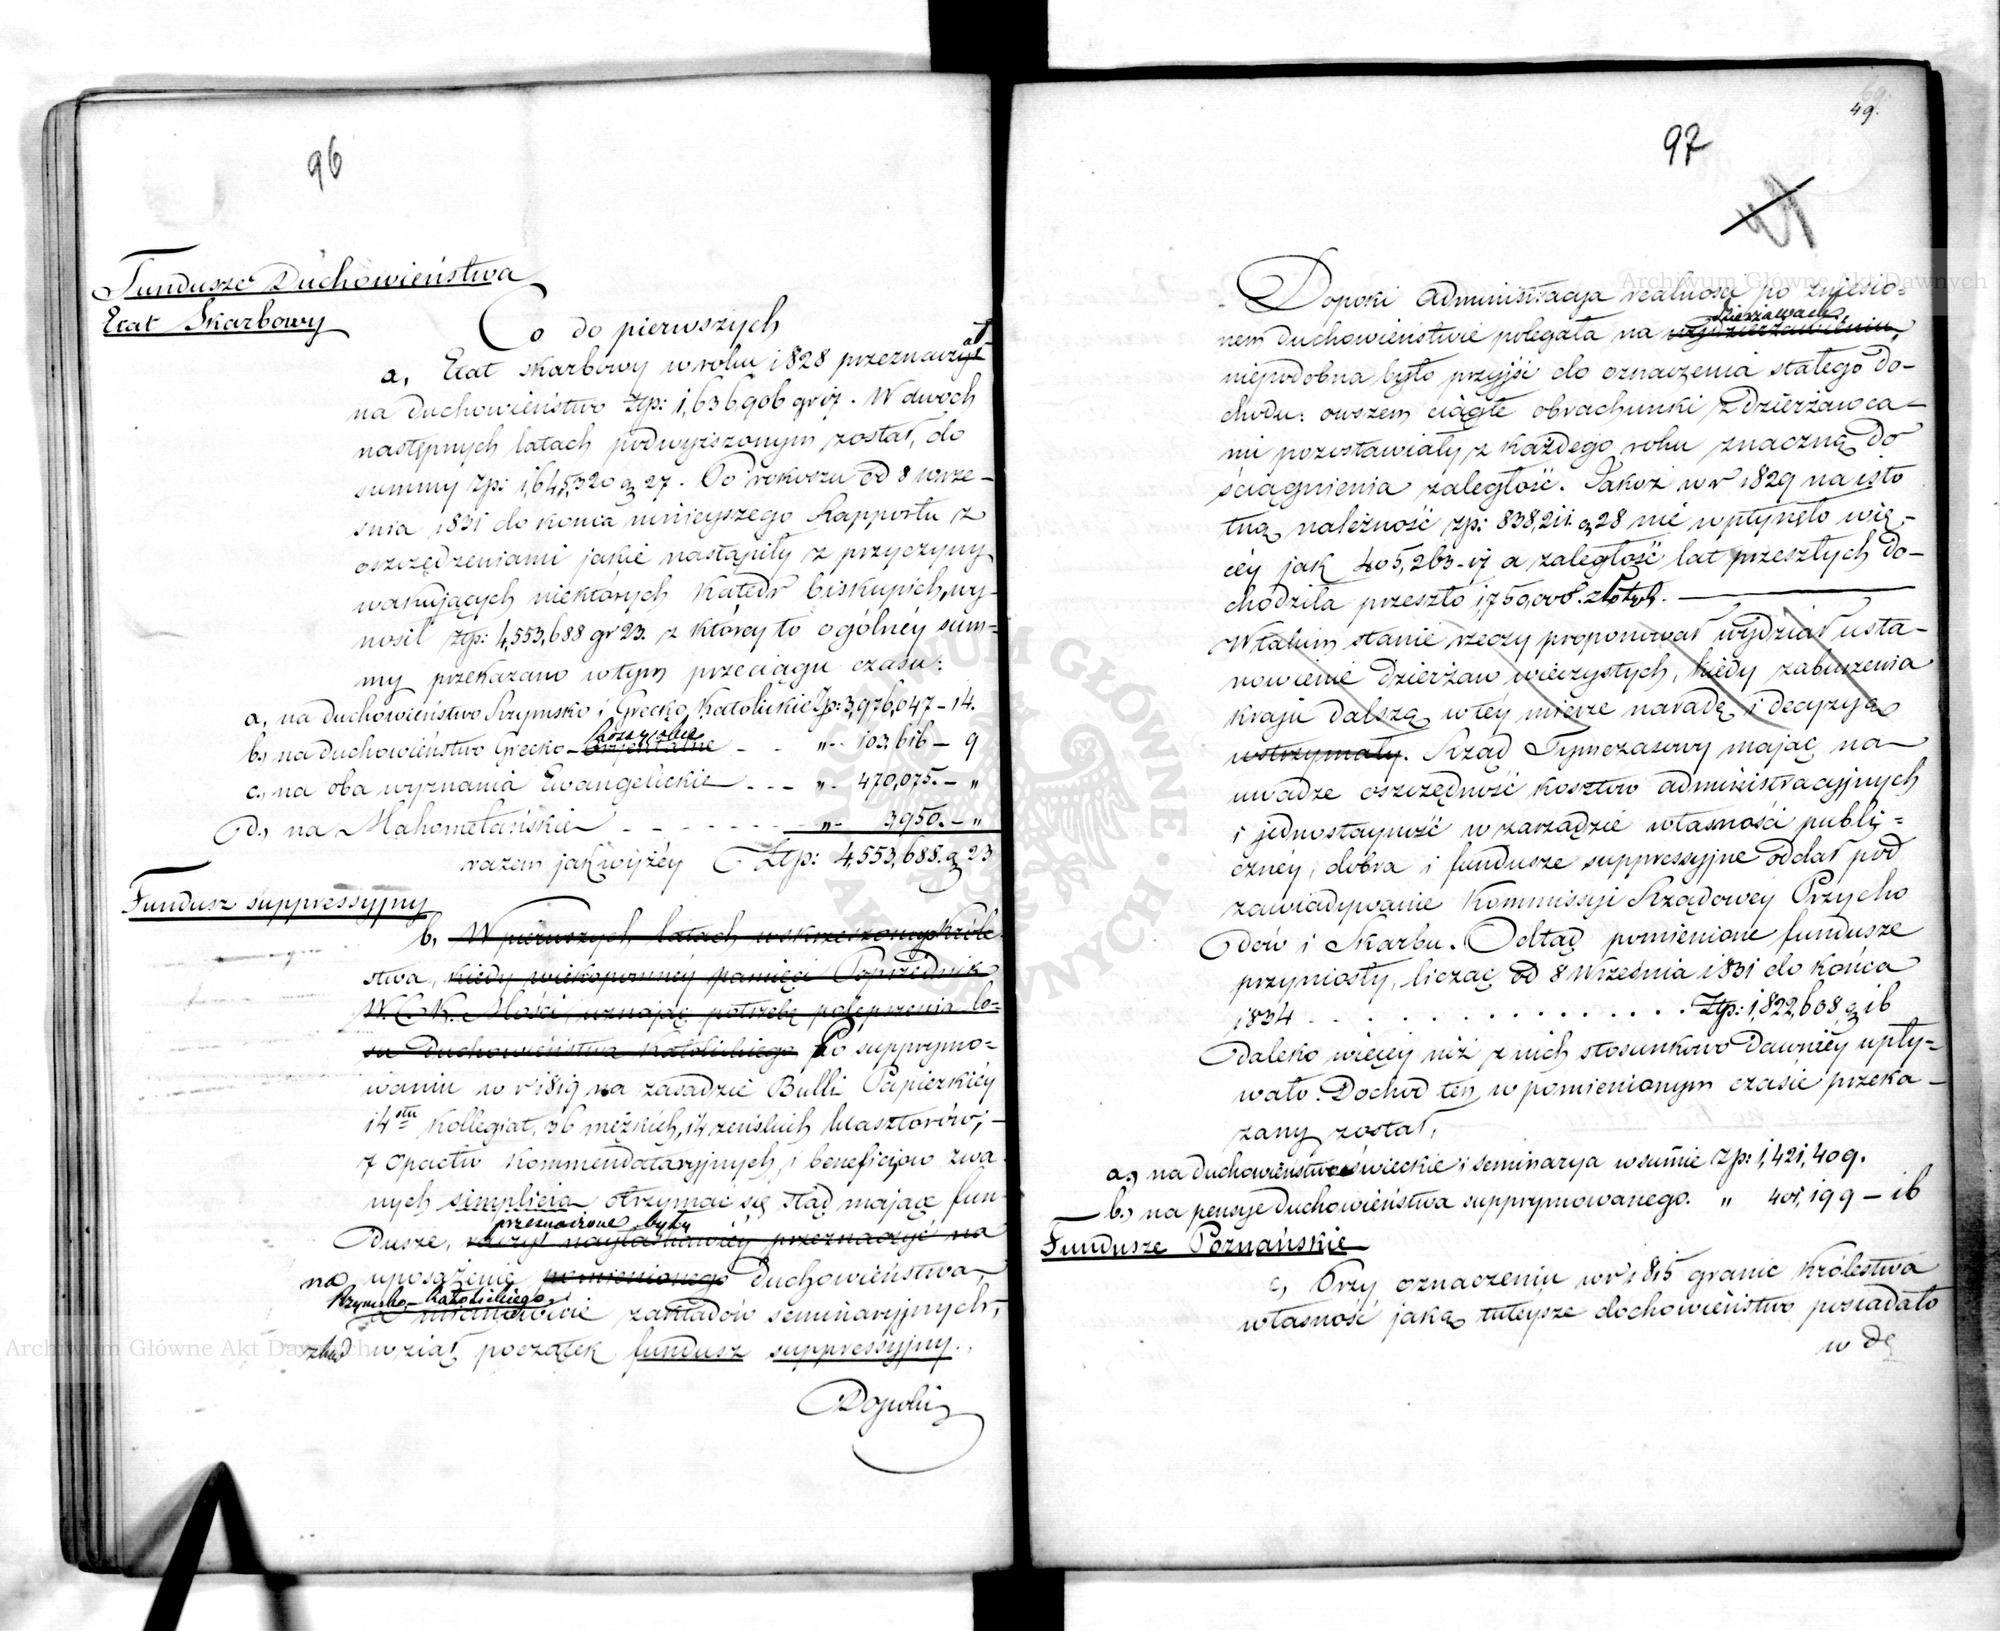 96
Fundusze Duchowieństwa
Etat Skarbowy
Co do pierwszych
a, Etat skarbowy w roku 1828 przeznaczył
na duchowieństwo Złp: 1,636,906 gr 17. W dwoch
następnych latach podwyższonym został, do
summy Złp: 1,645,320 g 27. Po rokoszu od 8 wrze-
snia 1831 do końca ninieyszego Rapportu z
oszczędzeniami jakie nastąpiły z przyczyny
wakujących niektórych Katedr biskupich, wy-
nosił Złp: 4,553,688 gr 23. z którey to ogólnéy sum-
my przekazano w tym przeciągu czasu:
a, na duchowieństwo Rzymsko i Grecko Katolickie Złp: 3,976,047 – 14.
b, na duchowieństwo Grecko-orjentalne „ 103,616 – 9
c, na oba wyznania Ewangelickie „ 470,075. – „
d, na Mahometańskie „ 3,950. – „
razem jak wyżéy Złp: 4,553,688. g 23
Fundusz suppressyjny
b, W pierwszych latach wskrzeszonego Króle-
stwa, kiedy wiekopomnéy pamięci Poprzednik
W. C. K. Mości, uznając potrzebę polepszenia lo-
su Duchowieństwa Katolickiego Po supprymo-
waniu w r 1819 na zasadzie Bulli Papiezkiéy
14stu Kollegiat, 36 męzkich, 14 zeńskich klasztorów,
7 opactw Kommendataryjnych, i beneficjow zwa-
nych simplicia otrzymać się ztąd mające fun-
przeznaczone były
dusze, raczył nayłaskawiéy przeznaczyć na
na uposażenie pomienionego Duchowieństwa
Rzymsko-Katolickiego
a mianowicie zakładów seminaryjnych,
ztąd wziął początek fundusz suppressyjny.
Dopóki
69.
49.
97
Dopoki administracya realnosci po zniesio-
dzierżawach
nem duchowieństwie polegała na wydzierżawieniu,
niepodobna było przyjść do oznaczenia stałego do-
chodu: owszem ciągłe obrachunki z dzierżawca-
mi pozostawiały z każdego roku znaczną do
ściągnienia zaległość. Jakoż w r 1829 na isto
tną należność złp: 838,211 g 28 nie wpłynęło wię-
céy jak 405,263 – 17 a zaległość lat przeszłych do-
chodziła przeszło 1,750,000. złotych.
W takim stanie rzeczy proponował wydział usta-
nowienie dzierżaw wieczystych, kiedy zaburzenia
kraju dalszą w téy mierze naradę i decyzyą
wstrzymały. Rząd Tymczasowy mając na
uwadze oszczędność kosztow administracyjnych
i jednostayność w zarządzie własności publi-
cznéy, dobra i fundusze suppressyjne oddał pod
zawiadywanie Kommissyi Rządowey Przycho
dów i Skarbu. Odtąd pomienione fundusze
przyniosły, licząc od 8 Września 1831 do końca
1834 . . . . . . . . . . . . . Złp: 1,822,608 g 16
daleko więcéy niż z nich stosunkowo dawniéy wpły-
wało. Dochod ten w pomienionym czasie przeka-
zany został,
a, na duchowieństwo świeckie i seminarya w sumie Złp: 1,421,409.
b, na pensye duchowieństwa supprymowanego. „ 401,199 – 16
Fundusze Poznańskie
c, Przy oznaczeniu w r 1815 granic Królestwa
własność jaką tuteysze duchowieństwo posiadało
w Dę
ARCHIWUM GŁÓWNE AKT DAWNYCH
Archiwum Główne Akt Dawnych
Archiwum Główne Akt Dawnych